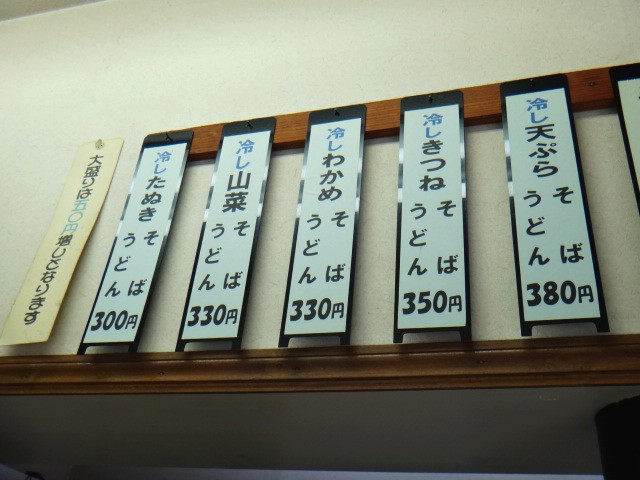 大盛りは五〇円増しとなります
冷したぬき
そば
うどん
300円
冷し山菜
そば
うどん
330円
冷しわかめ
そば
うどん
330円
冷しきつね
そば
うどん
350円
冷し天ぷら
そば
うどん
380円